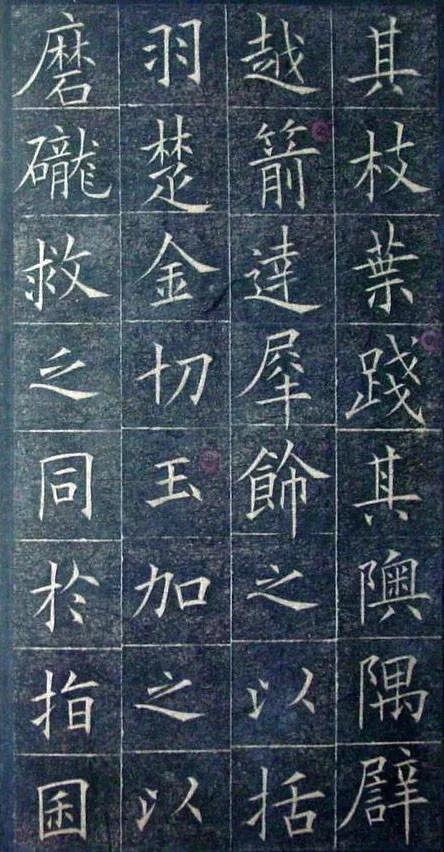 其枝葉踐其隩隅譬
越箭達犀飾之以括
羽楚金切玉加之以
磨礲救之同於指囷